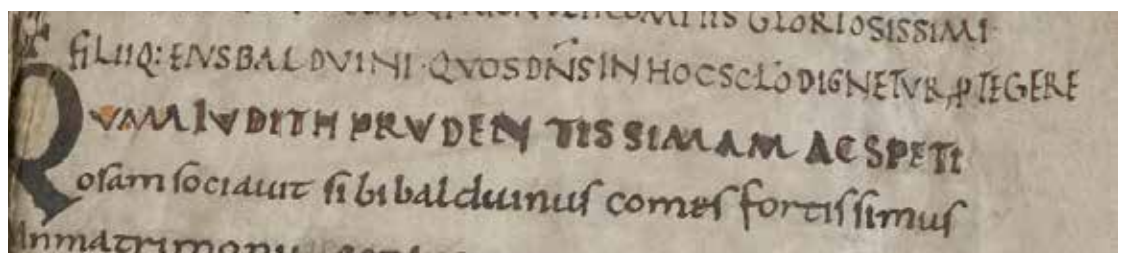 GLORIOSISSIMI·
FILIIQ: EIVS BALDVINI · QVOS DN̄S IN HOC SCLO DIGNETVR ꝓTEGERE
QVAM IVDITH PRVDENTISSIMAM AC SPETI
osam sociauit sibi balduinus comes fortissimus
In